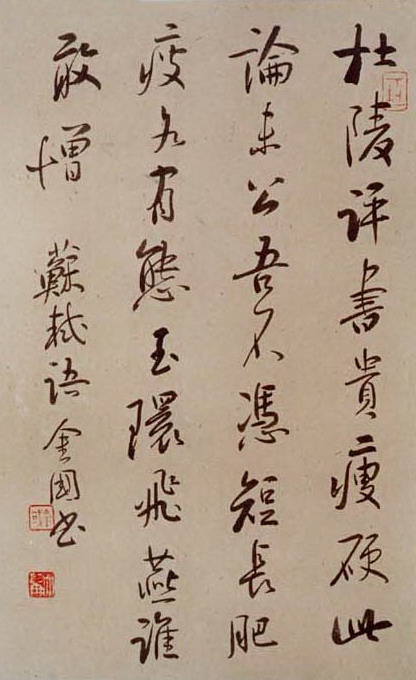 杜陵評書貴瘦硬此
論未公吾不憑短長肥
瘦各有態玉環飛燕誰
敢憎 蘇軾語 金國書